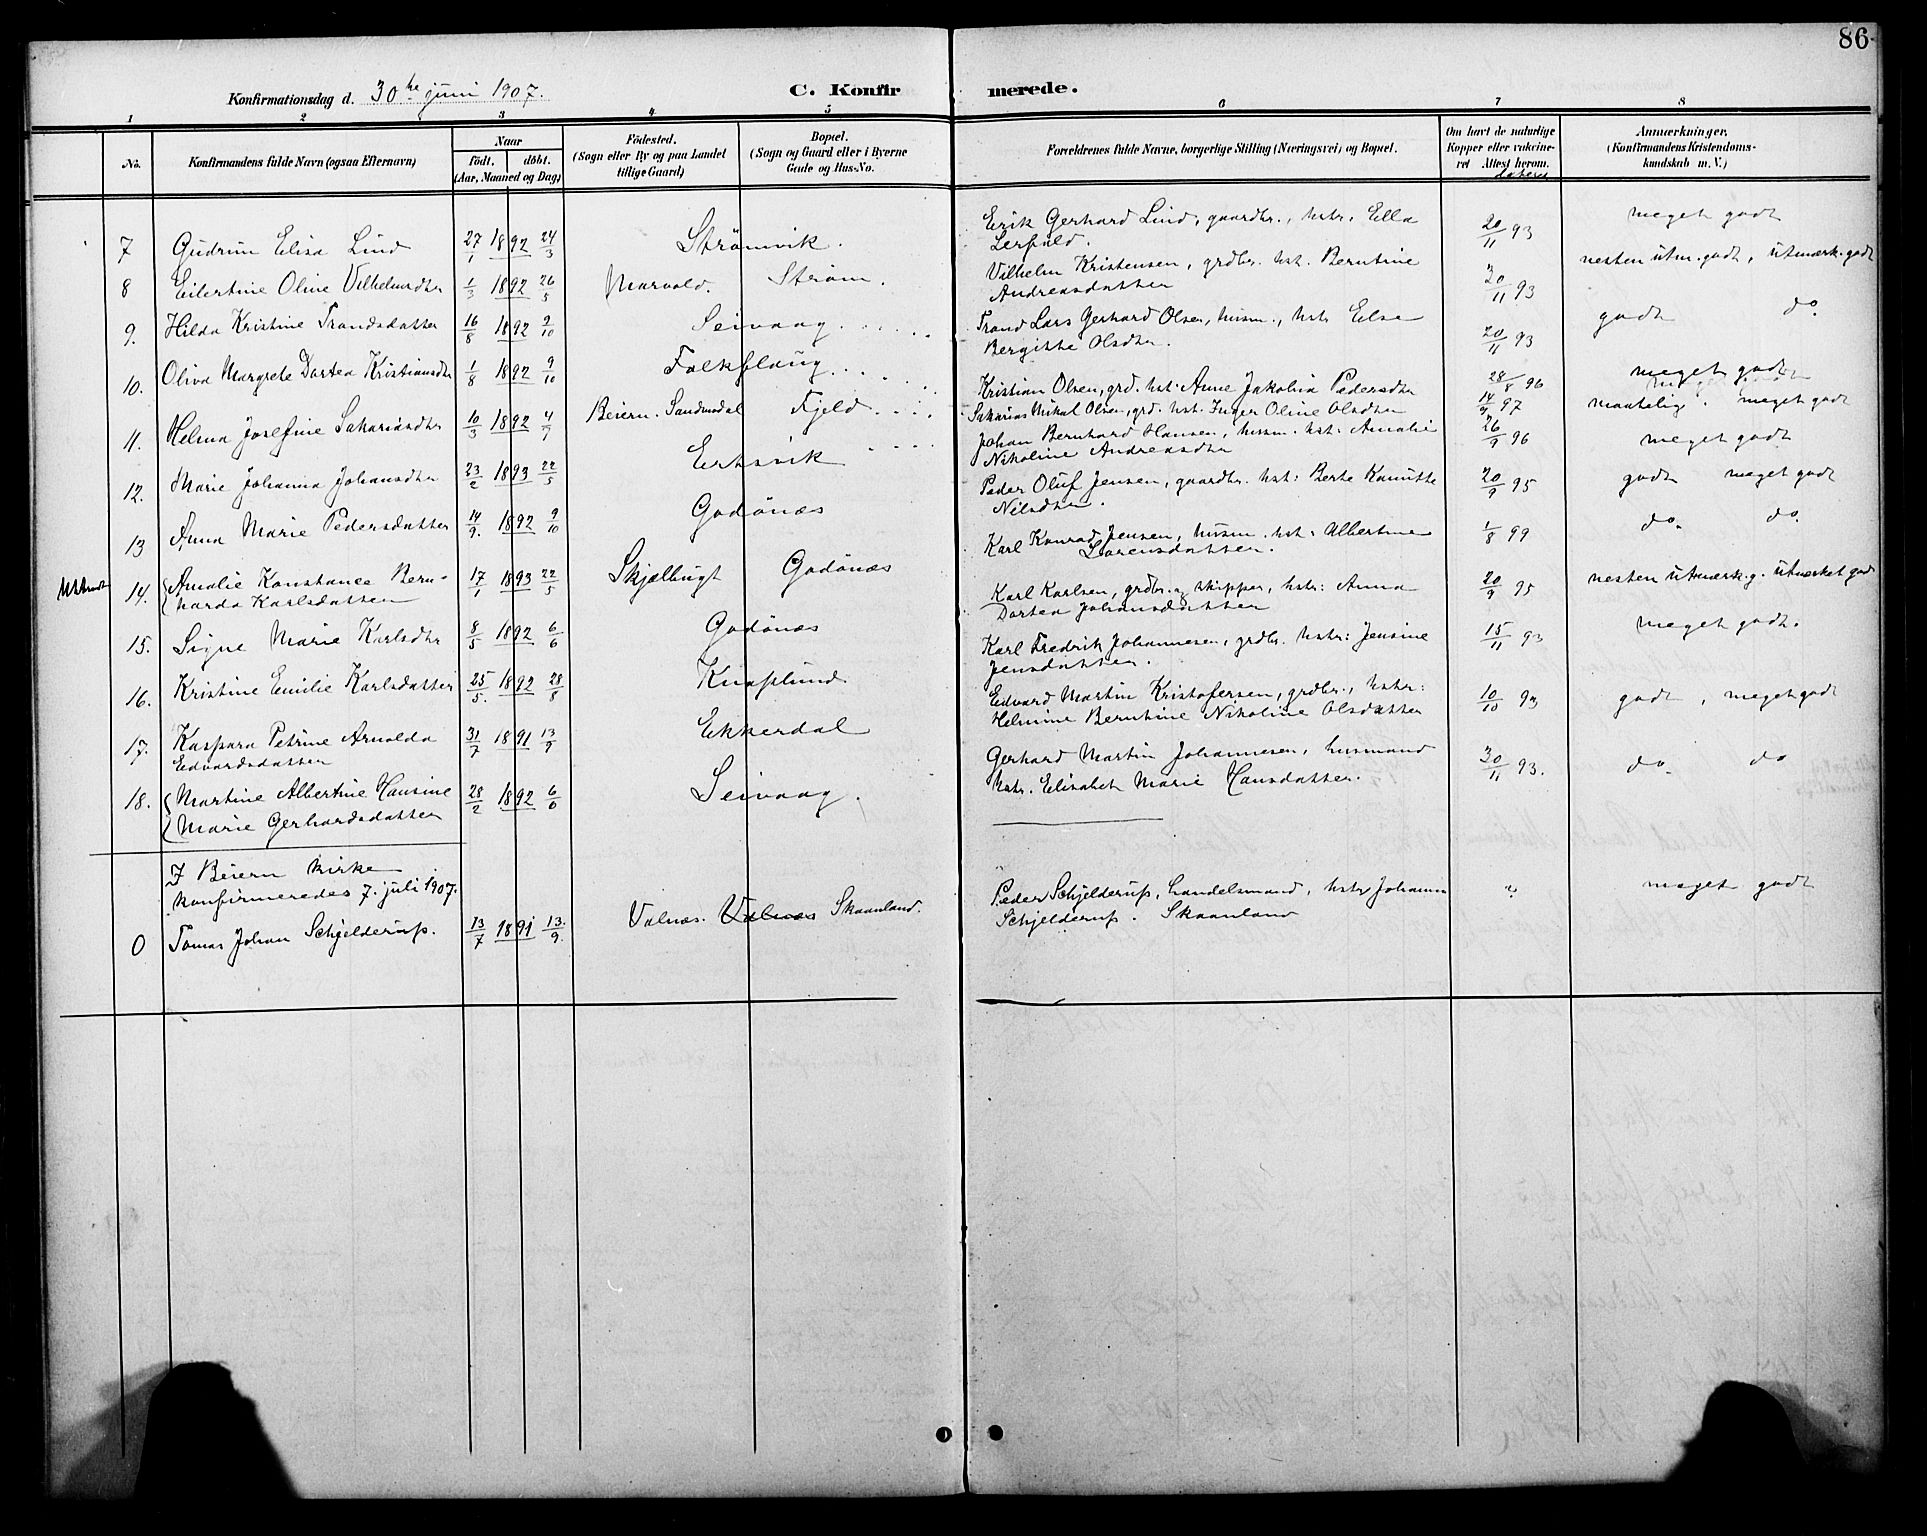 86
Konfirmationsdag d. 30te juni 1907. C. Konfir merede.
1 2 3 4 5 6 7 8
No.
Konfirmandens fulde Navn (ogsaa Efternavn)
Naar
födt. döbt.
(Aar, Maaned og Dag)
Födested.
(Sogn eller By og paa Landet
tillige Gaard)
Bopæl.
(Sogn og Gaard eller i Byerne
Gade og Hus-No.
Forældrenes fulde Navne, borgerlige Stilling (Næringsvei) og Bopæl.
Om havt de naturlige
Kopper eller vakcine-
ret Attest herom.
dateret
Anmærkninger,
(Konfirmandens Kristendoms-
kundskab m. V.)
7 Gudrun Elisa Lind 27/1 1892 24/3 Strömvik. Erik Gerhard Lind, gaardbr., hstr. Ella 20/11 93 meget godt
Lerfald.
8 Eilertine Oline Vilhelmsdtr 1/3 1892 26/5 Marvold. Ström. Vilhelm Kristensen, grdbr. hst. Berntine 30/11 93 nesten utm. godt, utmærk. godt
Andreasdatter
9. Hilda Kristine Trondsdatter 16/8 1892 9/10 Seivaag. Trond Lars Gerhard Olsen, husm., hstr Else 20/11 93 godt do.
Bergitte Olsdtr.
10. Oliva Margrete Dortea Kristiansdtr 1/8 1892 9/10 Falkflaug. Kristian Olsen, grd. hst: Anne Jakobia Pedersdtr 28/8 96 meget godt
11. Helma Josefine Sakariasdtr 10/3 1892 4/7 Beiern. Sandmdal Fjeld. Sakarias Mikal Olsen, grd. hst. Inger Oline Olsdtr 14/9 97 maatelig. meget godt
12. Marie Johanna Johansdtr 23/2 1893 22/5 Ertsvik Johan Bernhard Hansen, husm. hst: Amalie 26/9 96 meget godt
Nikoline Andreasdtr
13 Anna Marie Pedersdatter 14/9. 1892 9/10 Godönæs Peder Oluf Jensen, gaardbr. hst: Berte Knutte 20/9 95 godt meget godt
Nilsdtr.
14. Amalie Konstance Bern- 17/1 1893 22/5 Skjælbugt Godönæs Karl Konrad Jensen, husm. hst: Albertine 1/8 99 do. do.
harda Karlsdatter Lorensdatter.
15. Signe Marie Karlsdtr 8/5 1892 6/6 Godönæs Karl Karlsen, grdbr. og skipper, hstr: Anna 20/9 95 nesten utmærk. g. utmærket godt
Dortea Johansdatter
16. Kristine Emilie Karlsdatter 25/5. 1892 28/8 Knaplund Karl Fredrik Johannesen, grdbr. hstr: Jensine 15/11 93 meget godt.
Jensdatter.
17. Kaspara Petrine Arnolda 31/7 1891 13/9 Ekkerdal Edvard Martin Kristofersen, grdbr., hstr: 10/10 93 godt, meget godt
Edvardsdatter Helmine Berntine Nikoline Olsdatter
18. Martine Albertine Hansine 28/2 1892 6/6 Seivaag. Gerhard Martin Johannesen, husmand 30/11 93. do. do
Marie Gerhardsdatter hstr. Elisabet Marie Hansdatter.
I Beiern kirke
konfirmeredes 7. juli 1907.
0 Tomas Johan Schjelderup. 13/7 1891 13./9. Valnæs. Valnæs Skaanland. Peder Schjelderup, handelsmand, hstr Johanna " meget godt
Schjelderup. Skaanland